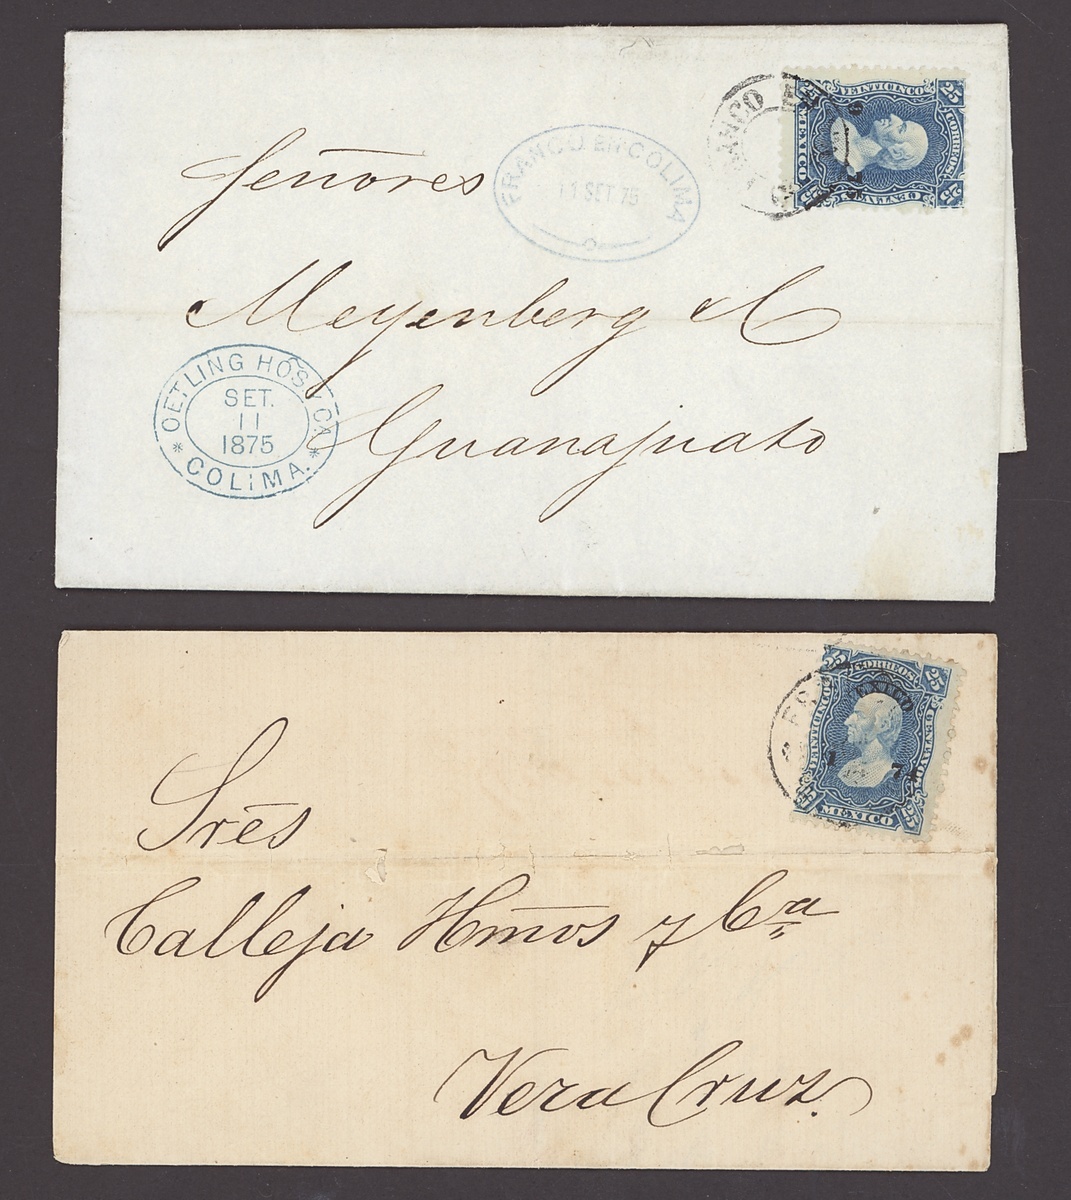 Señores
FRANCO EN COLIMA
11 SET 75
FRANCO
VEINTICINCO
CENTAVOS
CORREOS
MEXICO
25
25
25
25
Meyenberg & C
OETLING HOS Y CA
SET.
11
1875
* COLIMA. *
Guanajuato
Sres
CORREOS
VEINTICINCO
CENTAVOS
MEXICO
25
25
25
25
Calleja Hmos y Ca
Vera Cruz.